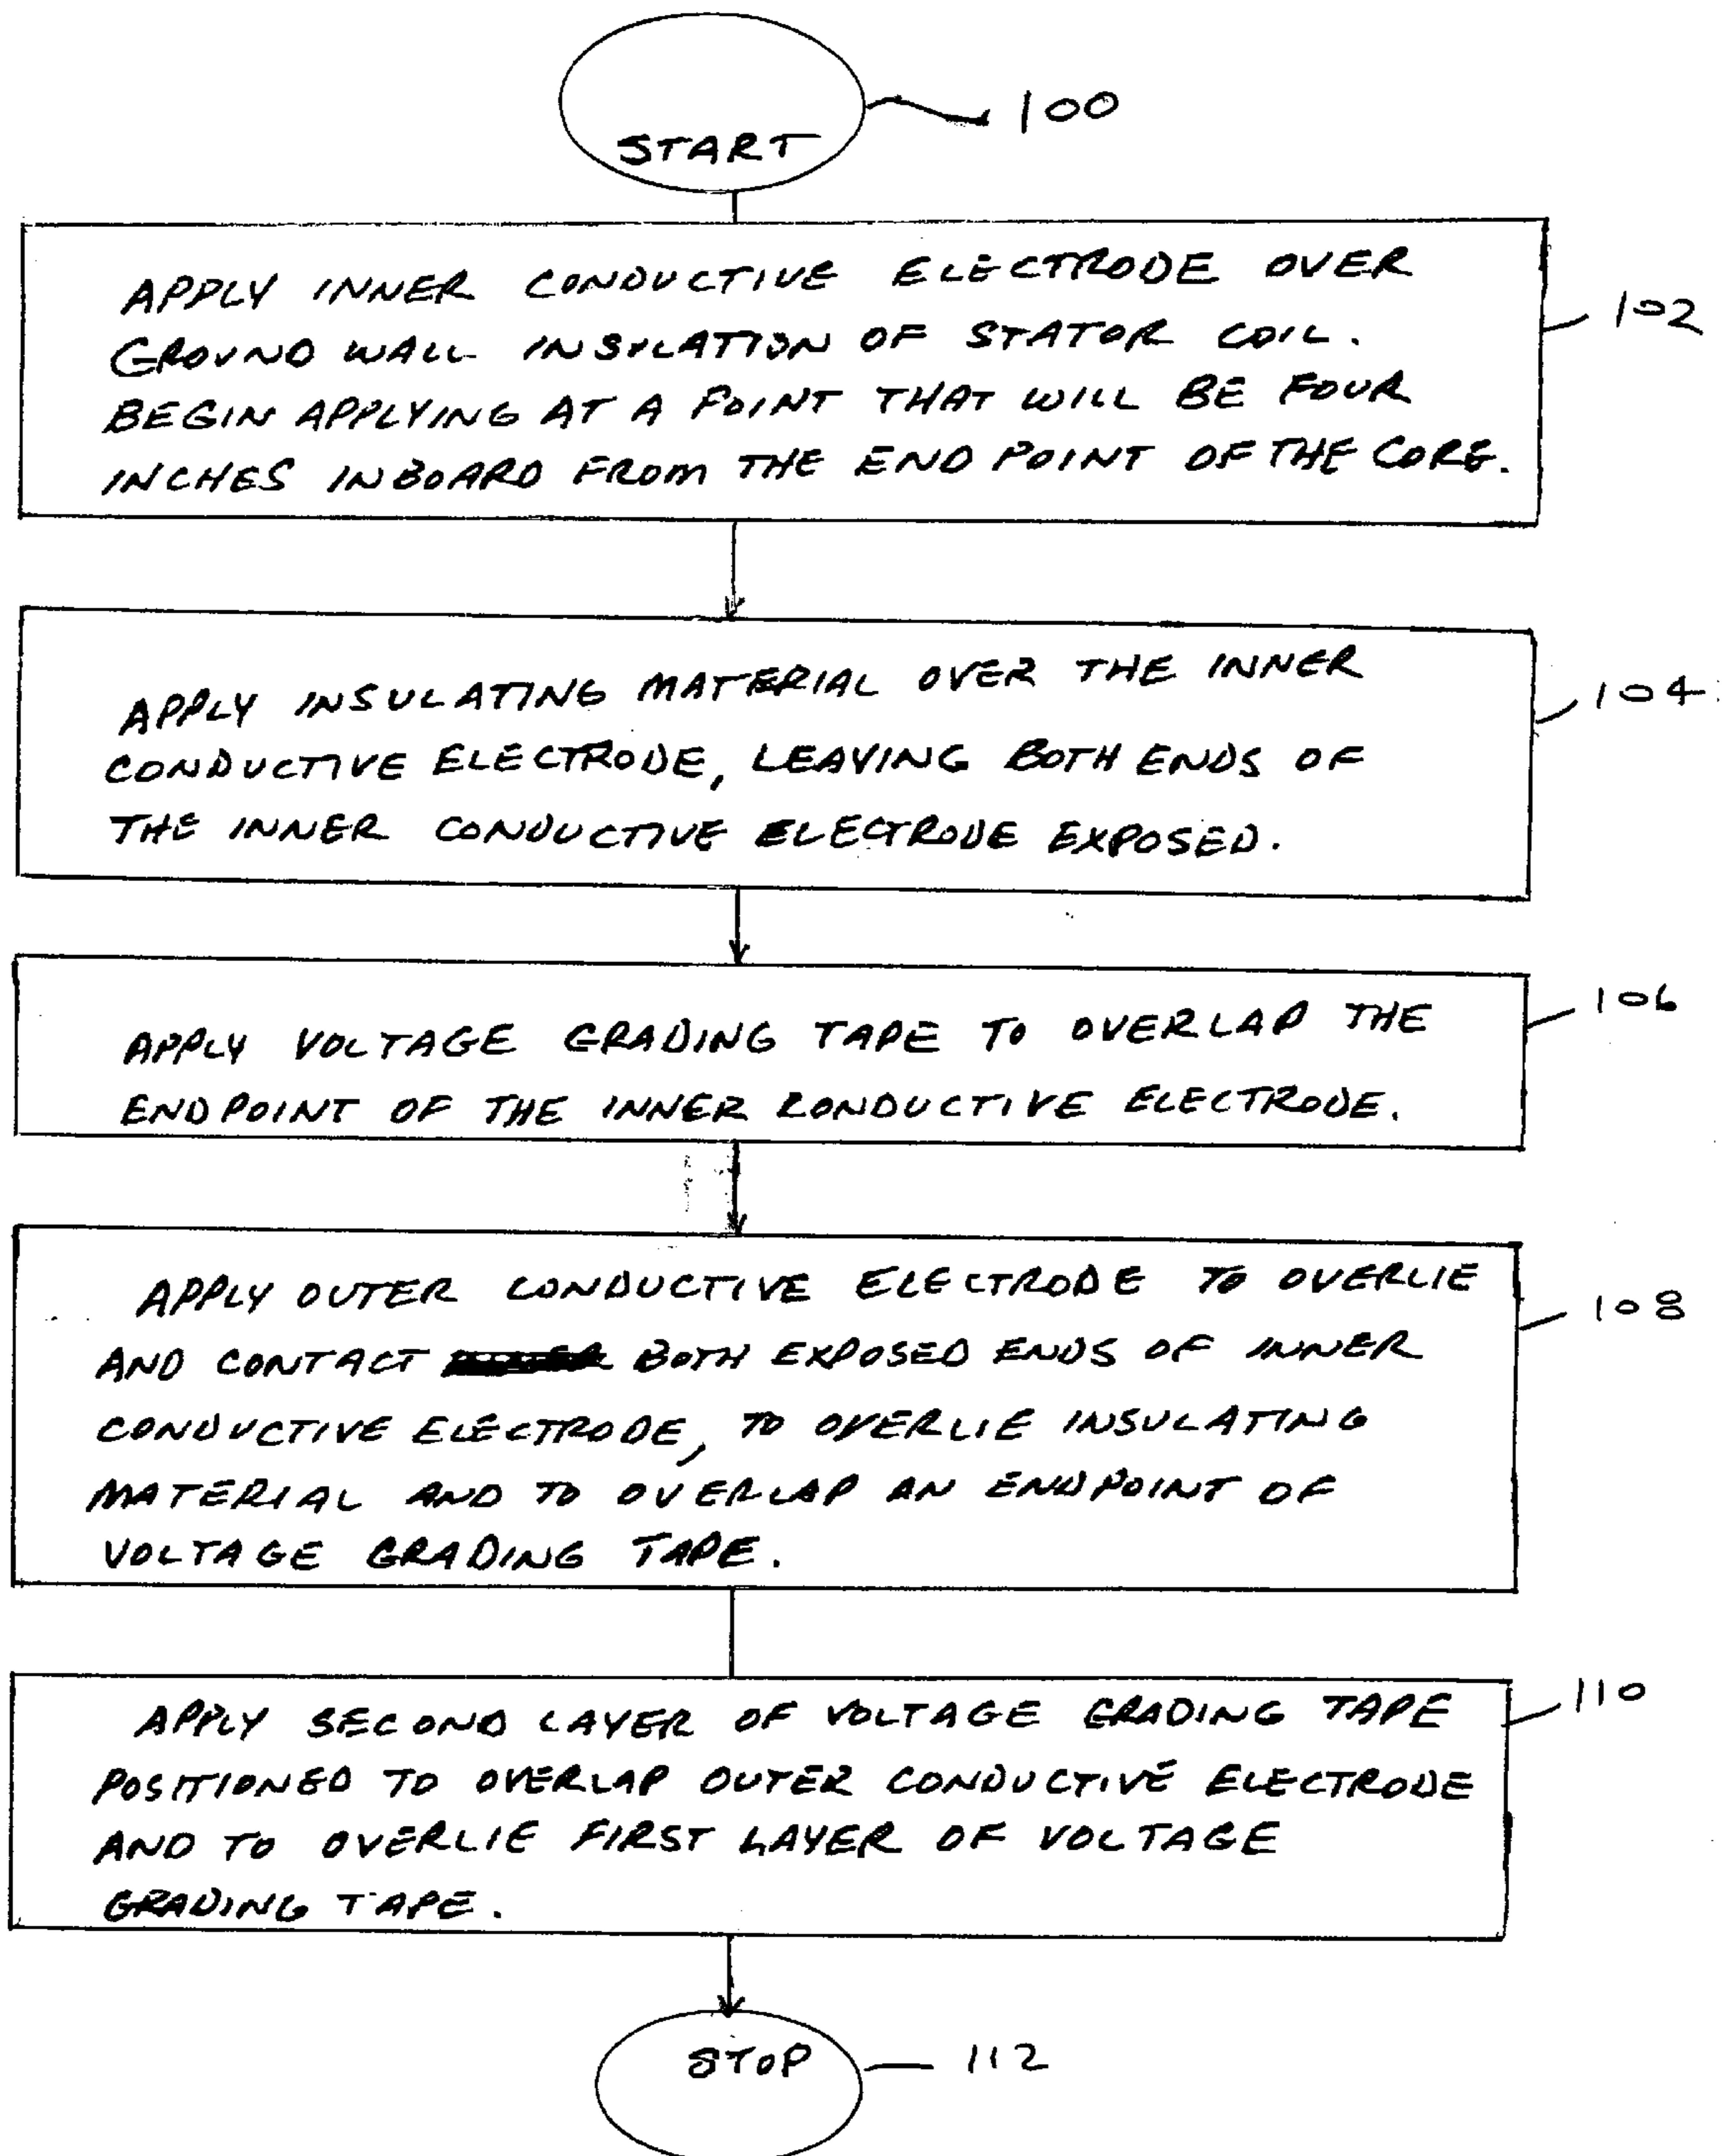 START
100
APPLY INNER CONDUCTIVE ELECTRODE OVER
GROUND WALL INSULATION OF STATOR COIL.
BEGIN APPLYING AT A POINT THAT WILL BE FOUR
INCHES INBOARD FROM THE END POINT OF THE CORE.
102
APPLY INSULATING MATERIAL OVER THE INNER
CONDUCTIVE ELECTRODE, LEAVING BOTH ENDS OF
THE INNER CONDUCTIVE ELECTRODE EXPOSED.
104
APPLY VOLTAGE GRADING TAPE TO OVERLAP THE
ENDPOINT OF THE INNER CONDUCTIVE ELECTRODE.
106
APPLY OUTER CONDUCTIVE ELECTRODE TO OVERLIE
AND CONTACT BOTH EXPOSED ENDS OF INNER
CONDUCTIVE ELECTRODE, TO OVERLIE INSULATING
MATERIAL AND TO OVERLAP AN ENDPOINT OF
VOLTAGE GRADING TAPE.
108
APPLY SECOND LAYER OF VOLTAGE GRADING TAPE
POSITIONED TO OVERLAP OUTER CONDUCTIVE ELECTRODE
AND TO OVERLIE FIRST LAYER OF VOLTAGE
GRADING TAPE.
110
STOP
112